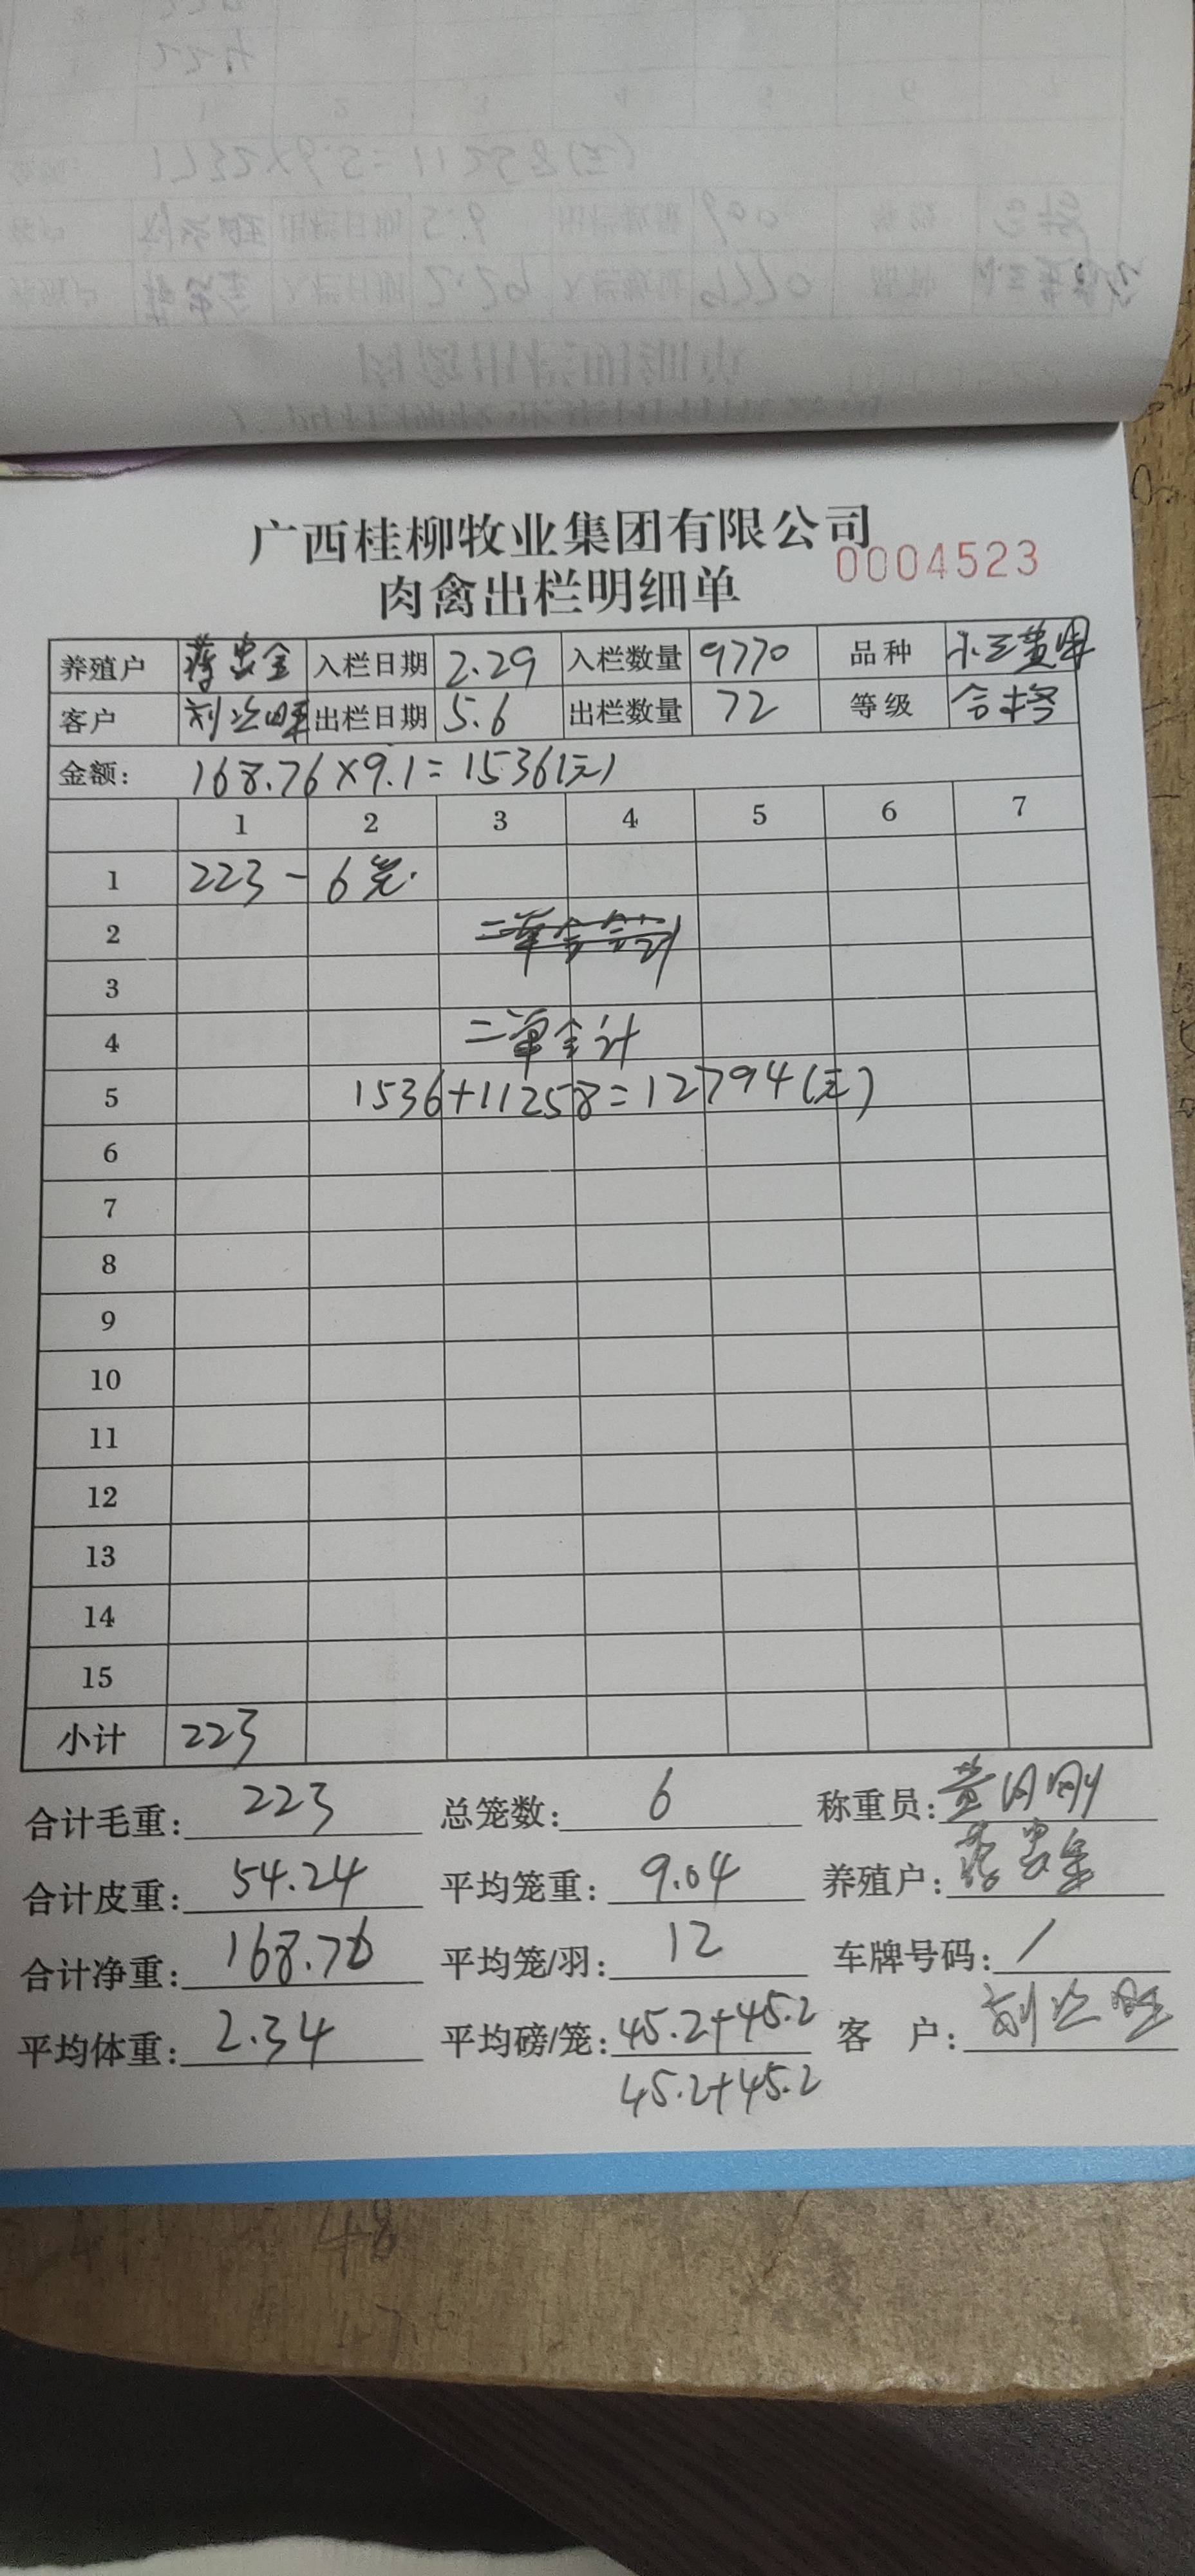 广西桂柳牧业集团有限公司
0004523
肉禽出栏明细单
养殖户 蒋忠全 入栏日期 2.29 入栏数量 9770 品种
客户 出栏日期 5.6 出栏数量 72 等级 合格
金额: 168.76×9.1=1536(元)
1 2 3 4 5 6 7
1 223 - 6笼.
2 二单合计
3
4 二单合计
5 1536+11258=12794(元)
6
7
8
9
10
11
12
13
14
15
小计 223
合计毛重: 223 总笼数: 6 称重员:
合计皮重: 54.24 平均笼重: 9.04 养殖户:
合计净重: 168.76 平均笼/羽: 12 车牌号码: /
平均体重: 2.34 平均磅/笼: 45.2+45.2 客 户:
45.2+45.2